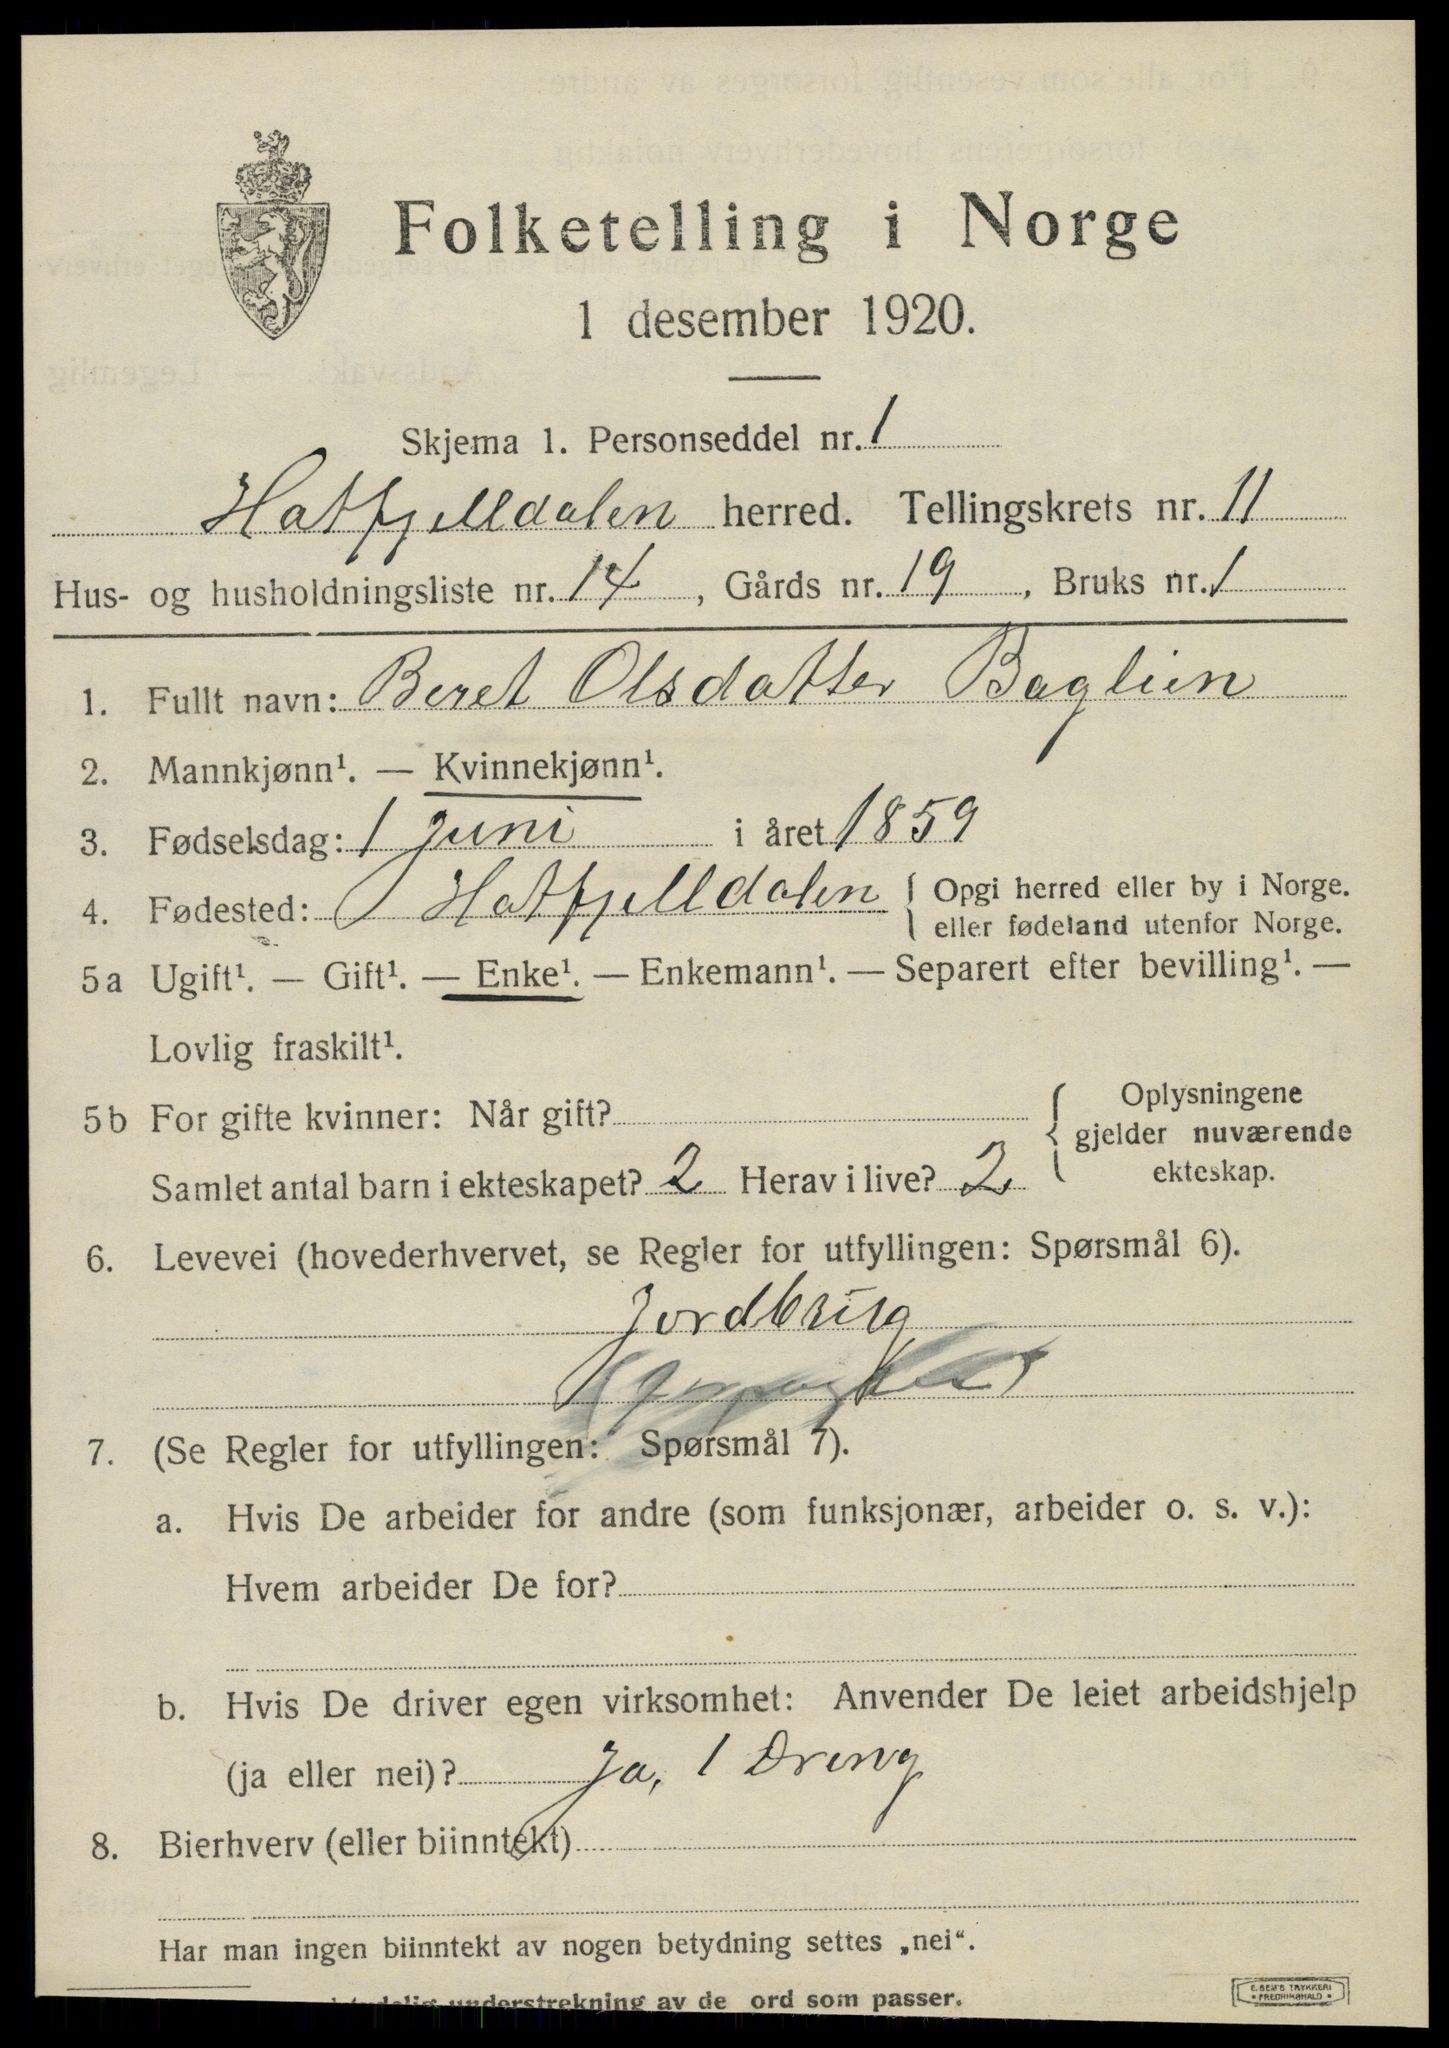 Folketelling i Norge
1 desember 1920.
Skjema 1. Personseddel nr. 1
Hatfjelldalen herred. Tellingskrets nr. 11
Hus- og husholdningsliste nr. 14, Gårds nr. 19, Bruks nr. 1
1. Fullt navn: Beret Olsdatter Baglien
2. Mannkjønn¹. — Kvinnekjønn¹.
3. Fødselsdag: 1 Juni i året 1859
4. Fødested: Hatfjelldalen { Opgi herred eller by i Norge.
eller fødeland utenfor Norge.
5a Ugift¹. — Gift¹. — Enke¹. — Enkemann¹. — Separert efter bevilling¹. —
Lovlig fraskilt¹.
5b For gifte kvinner: Når gift?
Samlet antal barn i ekteskapet? 2 Herav i live? 2
{ Oplysningene
gjelder nuværende
ekteskap.
6. Levevei (hovederhvervet, se Regler for utfyllingen: Spørsmål 6).
Jordbrug
7. (Se Regler for utfyllingen: Spørsmål 7).
a. Hvis De arbeider for andre (som funksjonær, arbeider o. s. v.):
Hvem arbeider De for?
b. Hvis De driver egen virksomhet: Anvender De leiet arbeidshjelp
(ja eller nei)? Ja, 1 Dreng
8. Bierhverv (eller biinntekt)
Har man ingen biinntekt av nogen betydning settes „nei“.
understrekning av de ord som passer.
E. SEM'S TRYKKERI
FREDRIKSHALD